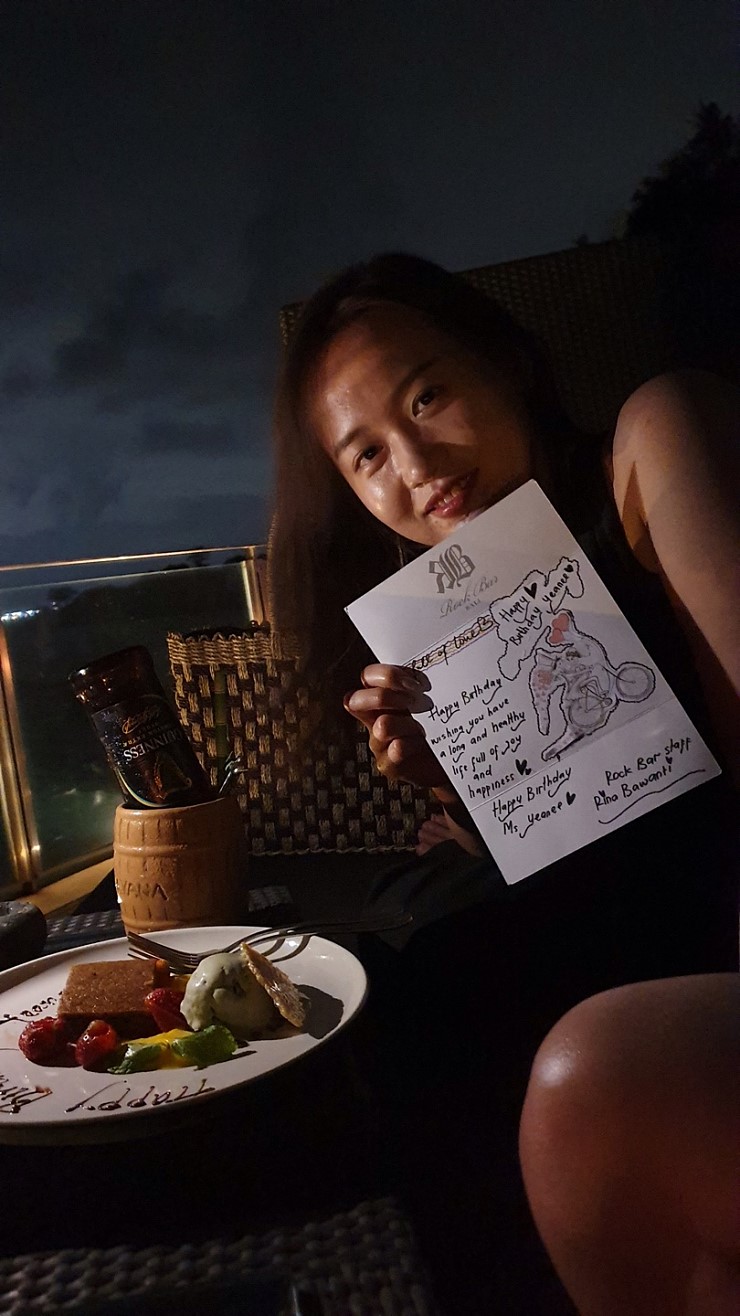 Rock Bar
BALI
Happy
Birthday Yeanee
Happy Birthday
wishing you have
a long and healthy
life full of joy
and
happiness
Happy Birthday
Ms. Yeanee
Rock Bar staff
Rina Bawanti
GUINNESS
Happy